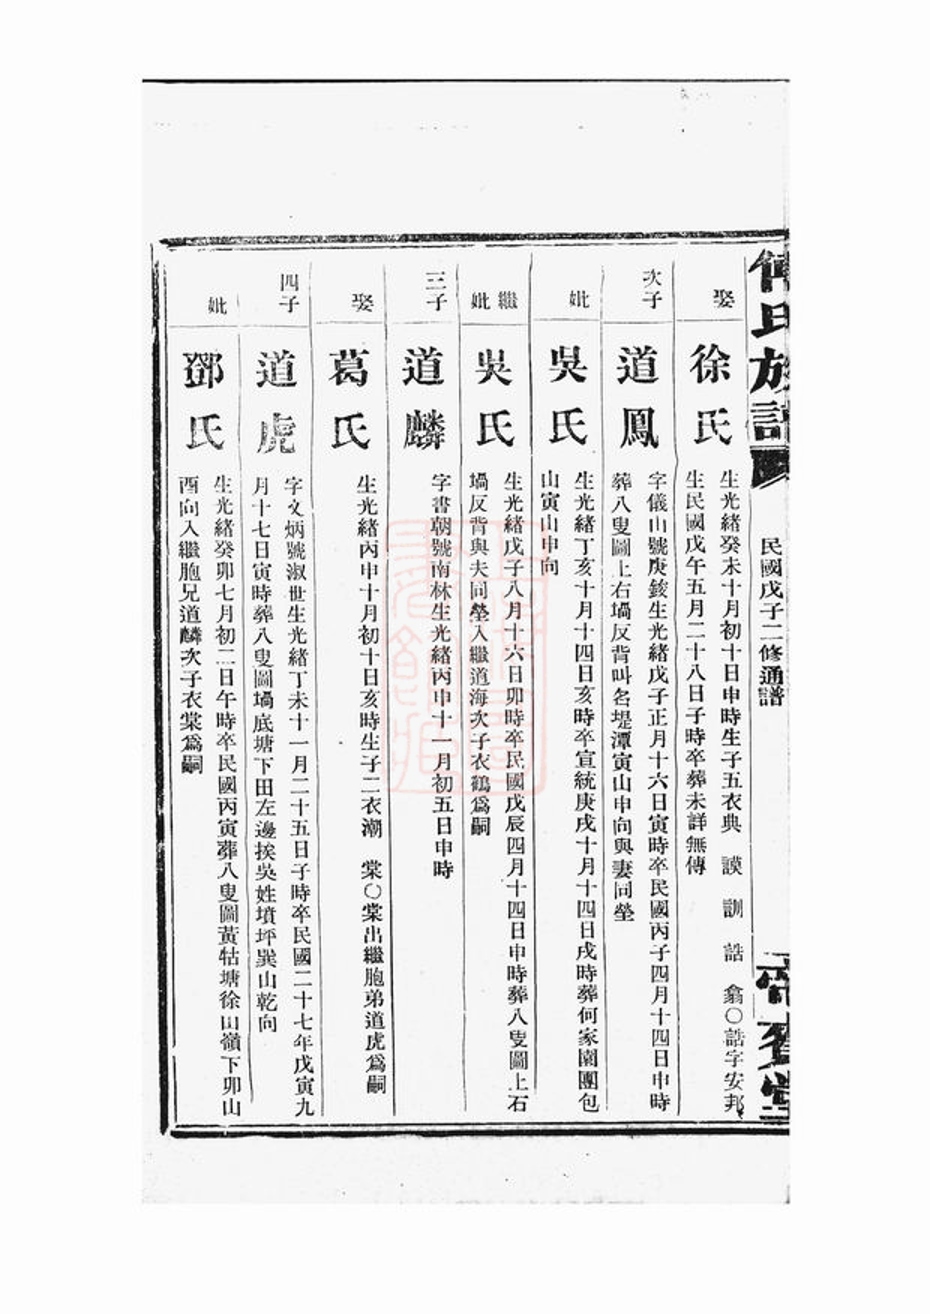 氏族譜
民國戊子二修通譜
堂
娶
徐氏
生光緒癸未十月初十日申時生子五衣典 謨 訓 誥 翕○誥字安邦
生民國戊午五月二十八日子時卒葬未詳無傳
次子
道鳳
字儀山號庚錂生光緒戊子正月十六日寅時卒民國丙子四月十四日申時
葬八叟圖上右塥反背叫名堤潭寅山申向與妻同塋
妣
吳氏
生光緒丁亥十月十四日亥時卒宣統庚戌十月十四日戌時葬何家園團包
山寅山申向
繼妣
吳氏
生光緒戊子八月十六日卯時卒民國戊辰四月十四日申時葬八叟圖上石
塥反背與夫同塋入繼道海次子衣鶴爲嗣
三子
道麟
字書朝號南林生光緒丙申十一月初五日申時
娶
葛氏
生光緒丙申十月初十日亥時生子二衣潮 棠○棠出繼胞弟道虎爲嗣
四子
道虎
字文炳號淑世生光緒丁未十一月二十五日子時卒民國二十七年戊寅九
月十七日寅時葬八叟圖塥底塘下田左邊挨吳姓墳坪巽山乾向
妣
鄧氏
生光緒癸卯七月初二日午時卒民國丙寅葬八叟圖黃牯塘徐山嶺下卯山
酉向入繼胞兄道麟次子衣棠爲嗣